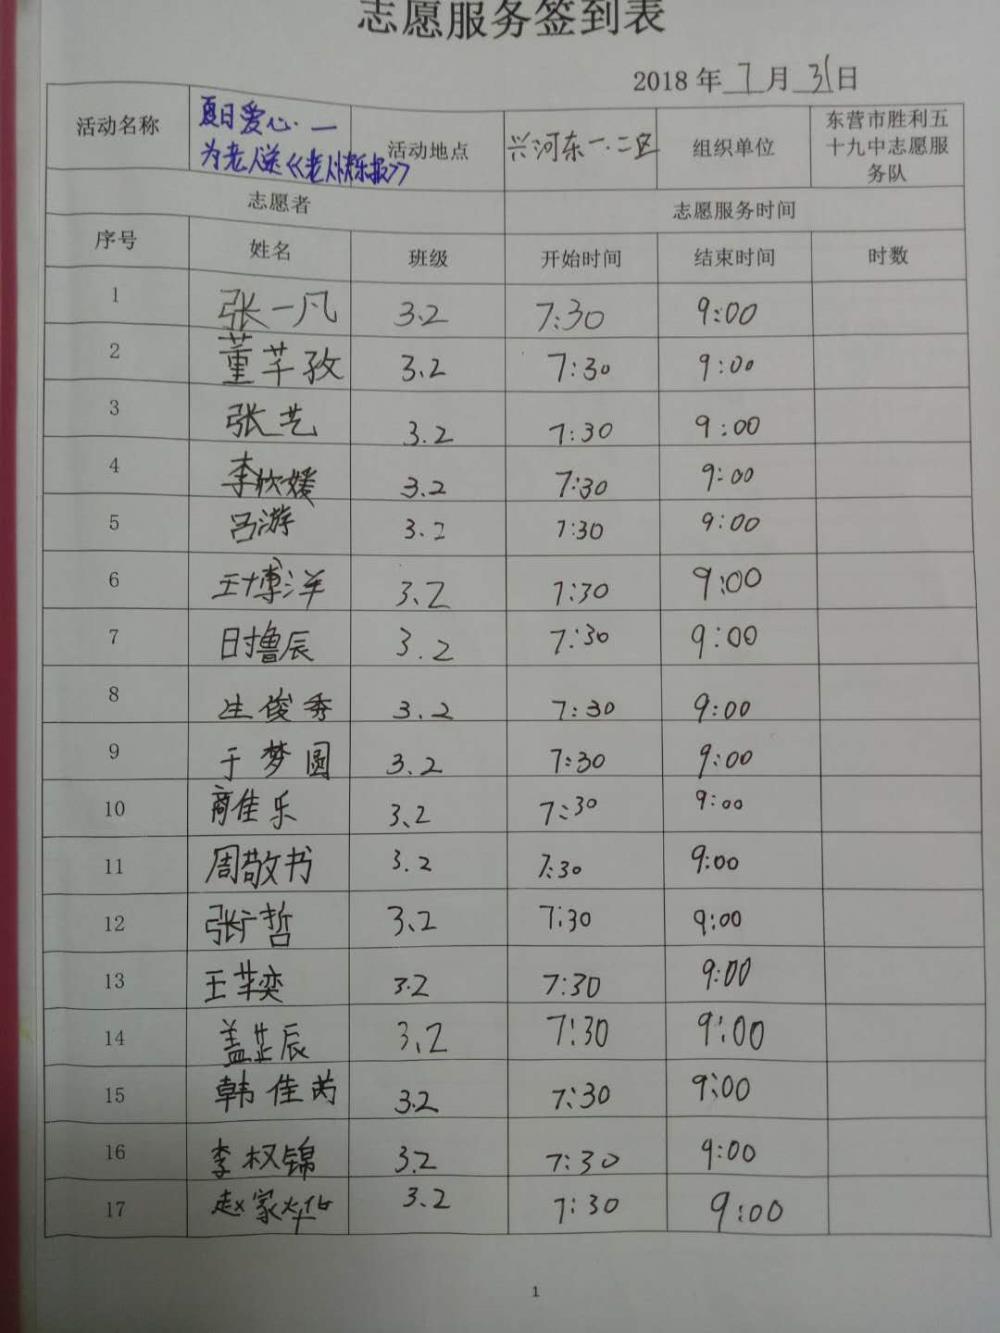 志愿服务签到表
2018 年 7 月 31 日
活动名称 夏日爱心·一 为老人送《老人快乐报》 活动地点 兴河东一.二区 组织单位 东营市胜利五十九中志愿服务队
志愿者 志愿服务时间
序号 姓名 班级 开始时间 结束时间 时数
1 张一凡 3.2 7:30 9:00
2 董芊孜 3.2 7:30 9:00
3 张艺 3.2 7:30 9:00
4 李欣媛 3.2 7:30 9:00
5 吕游 3.2 7:30 9:00
6 王博洋 3.2 7:30 9:00
7 时鲁辰 3.2 7:30 9:00
8 生俊秀 3.2 7:30 9:00
9 于梦圆 3.2 7:30 9:00
10 商佳乐 3.2 7:30 9:00
11 周敬书 3.2 7:30 9:00
12 张广哲 3.2 7:30 9:00
13 王芊奕 3.2 7:30 9:00
14 盖芷辰 3.2 7:30 9:00
15 韩佳芮 3.2 7:30 9:00
16 李权锦 3.2 7:30 9:00
17 赵家烨 3.2 7:30 9:00
1